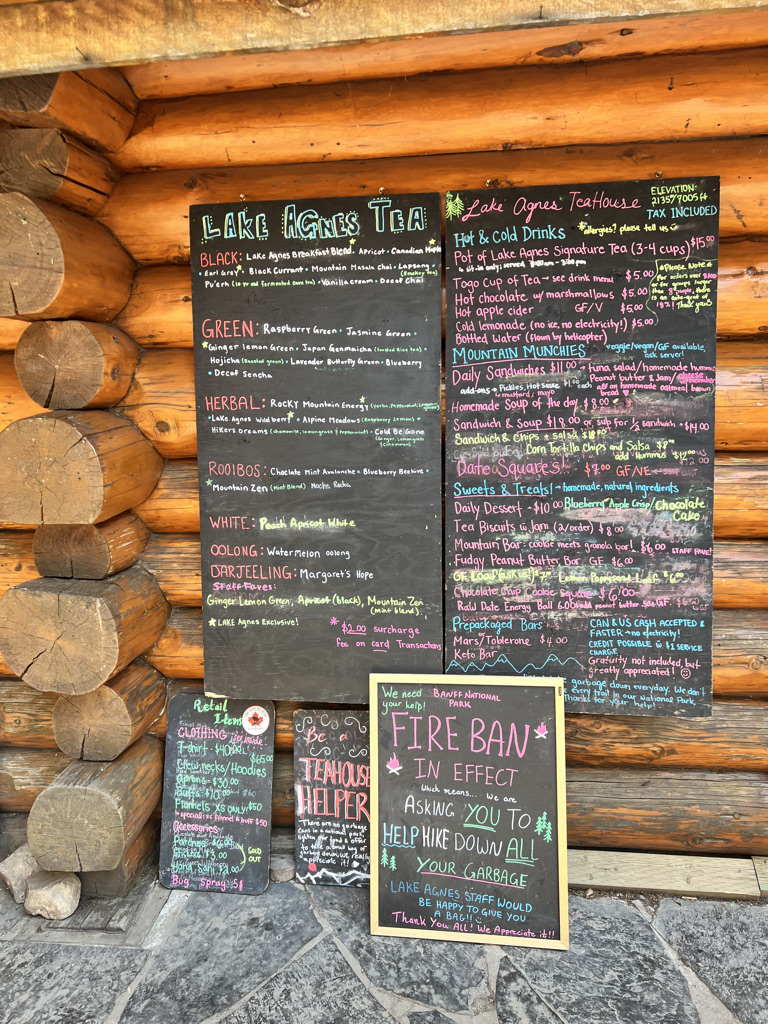 LAKE AGNES TEA
BLACK: Lake Agnes Breakfast Blend • Apricot • Canadian Maple
• Earl Grey • Black Currant • Mountain Masala Chai • Lapsang •
(Smokey tea)
Pu'erh (10 yr old fermented dark tea) • Vanilla cream • Decaf Chai
GREEN: Raspberry Green • Jasmine Green •
Ginger Lemon Green • Japan Genmaicha (toasted Rice tea)
Hojicha (Roasted green) • Lavender Butterfly Green • Blueberry
• Decaf Sencha
HERBAL: Rocky Mountain Energy
• Lake Agnes Wild berry • Alpine Meadows (Raspberry Lemon) •
Hikers Dreams (chamomile, lemongrass & peppermint) • Cold Be Gone
(Ginger, Lemongrass
ROOIBOS: Choclate Mint Avalanche • Blueberry Beehive •
Mountain Zen (Mint Blend)
WHITE: Peach Apricot White
OOLONG: Watermelon oolong
DARJEELING: Margaret's Hope
Staff Faves:
Ginger Lemon Green, Apricot (black), Mountain Zen
(mint blend)
LAKE Agnes Exclusive!
* $2.00 surcharge
fee on card Transactions
Lake Agnes TeaHouse
ELEVATION:
2135/7005ft
TAX INCLUDED
*allergies? please tell us
Hot & Cold Drinks
Pot of Lake Agnes Signature Tea (3-4 cups) $15.00
* sit-in only: served
Togo Cup of Tea → see drink menu $5.00
Hot chocolate w/ marshmallows $5.00
Hot apple cider GF/V $5.00
Cold lemonade (no ice, no electricity!) $5.00
Bottled Water (flown by helicopter)
*Please Note*
for orders over
or for groups larger
than 8 people, there
is an auto-grat of
18%! Thank you!
MOUNTAIN MUNCHIES
veggie/vegan/GF available,
ask server!
Daily Sandwiches $11.00 → tuna salad/homemade hummus
Peanut butter & Jam/cheese
all on homemade oatmeal brown
bread
add-ons → Pickles, Hot sauce $1.00 each
mustard / mayo
Homemade Soup of the day $8.00
Sandwich & Soup $18.00 or sub for ½ sandwich → $14.00
Sandwich & Chips + salsa
Corn Tortilla Chips and Salsa $8.00
add Hummus $12.00
Date Squares! $7.00 GF/VE
Sweets & Treats! → homemade, natural ingredients
Daily Dessert → $10.00 Blueberry Apple Crisp/Chocolate
Cake
Tea Biscuits w Jam (2/order) $8.00
Mountain Bar: cookie meets granola bar! $6.00 STAFF FAVE!
Fudgy Peanut Butter Bar GF $6.00
GF Loaf (ask us!) $7.00 Lemon Poppyseed Loaf $6.00
Chocolate Chip Cookie square $6.00
Raw Date Energy Ball 6.00 add peanut butter 50¢ GF
Prepackaged Bars
Mars/Toblerone $4.00
Keto Bar
CAN & US CASH ACCEPTED &
FASTER → no electricity!
CREDIT POSSIBLE W $2 SERVICE
CHARGE
Gratuity not included, but
greatly appreciated!
garbage down everyday. We don't
every trail in our National Park.
Thanks for your help!
Retail
Items
CLOTHING
T-shirt - $40.00
$65.00
Crewnecks/Hoodies
Aprons - $30.00
Buffs $10.00
Flannels XS only! $50
* special: xs flannel & buff $50
Accessories
Patches
Stickers $3.00
SOLD
OUT
Hand San. $3.00
Bug Spray 5$
Be a
TEAHOUSE
HELPER
There are no garbage
cans in a national park.
lighten our load & offer
to take a small bag of
garbage down. we really
appreciate it!
We need
your help!
BANFF NATIONAL
PARK
FIRE BAN
IN EFFECT
Which means.... We are
ASKING YOU TO
HELP HIKE DOWN ALL
YOUR GARBAGE
• LAKE AGNES STAFF WOULD
BE HAPPY TO GIVE YOU
A BAG!!
Thank You All! We Appreciate it!!